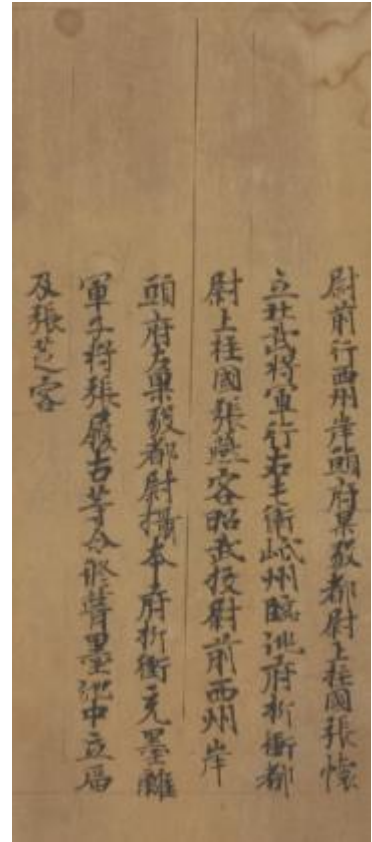 尉前行西州岸頭府果毅都尉上柱國張懷
立壯武將軍行右玉衛岷州臨洮府折衝都
尉上柱國張燕客昭武校尉前西州岸
頭府左果毅都尉攝本府折衝充墨離
軍子將張履古等令修葺墨池中立廟
及張芝容